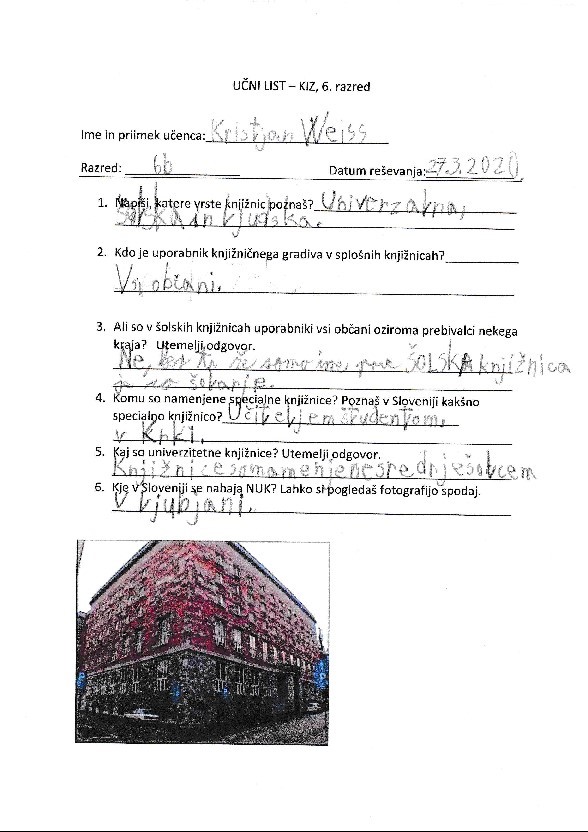 UČNI LIST – KIZ, 6. razred
Ime in priimek učenca: Kristjan Weiss
Razred: 6b Datum reševanja: 27.3.2020
1. Napiši, katere vrste knjižnic poznaš? Univerzalna,
šolska in ljudska.
2. Kdo je uporabnik knjižničnega gradiva v splošnih knjižnicah?
Vsi občani.
3. Ali so v šolskih knjižnicah uporabniki vsi občani oziroma prebivalci nekega
kraja? Utemelji odgovor.
Ne, ŠOLSKA knjižnica
je za šolarje.
4. Komu so namenjene specialne knjižnice? Poznaš v Sloveniji kakšno
specialno knjižnico? Učiteljem študentom,
v Krki.
5. Kaj so univerzitetne knjižnice? Utemelji odgovor.
Knjižnice so namenjene srednješolcem
6. Kje v Sloveniji se nahaja NUK? Lahko si pogledaš fotografijo spodaj.
V ljubjani.